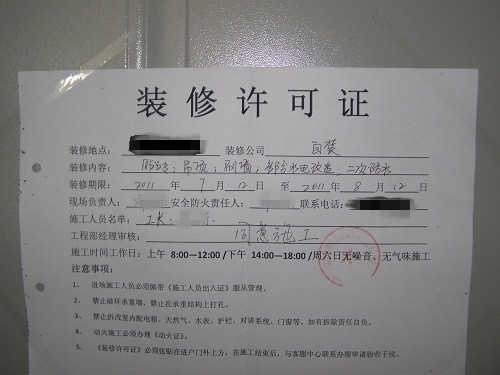 装修许可证
装修地点: 装修公司 自装
装修内容: 吊顶;刷墙;部分水电改造;二次防水
装修期限: 2011 年 7 月 12 日 至 2011 年 8 月 12 日
现场负责人: 安全防火责任人: 联系电话:
施工人员名单:
工程部经理审核: 同意施工
施工时间工作日: 上午 8:00—12:00 /下午 14:00—18:00 /周六日无噪音、无气味施工
注意事项:
1、 进场施工人员必须佩带《施工人员出入证》服从管理。
2、 禁止破坏承重墙,禁止在承重结构上打孔。
3、 禁止拆改室内配电箱、天然气、水表、护栏、对讲系统、门窗等,如有拆除责任自负。
4、 动火施工必须办理《动火证》。
5、 《装修许可证》必须张贴在进户门外上方,在施工结束后,与客服中心联系办理审请验收手续。